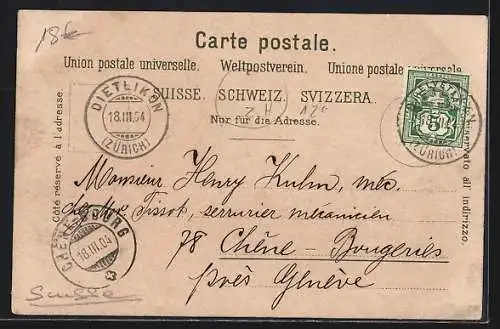 18€
Carte postale.
Union postale universelle. Weltpostverein. Unione postale universale.
SUISSE. SCHWEIZ. SVIZZERA.
Nur für die Adresse.
Côté réservé à l'adresse.
riservato all indirizzo.
DIETLIKON
18.III.04
(ZÜRICH)
5
DIETLIKON
(ZÜRICH)
Monsieur Henry Kuhn, méc.
chez Mr Tissot, serrurier mécanicien
78 Chêne-Bougeries
près Genève
CHÊNE-BOURG
18.III.04
Suisse